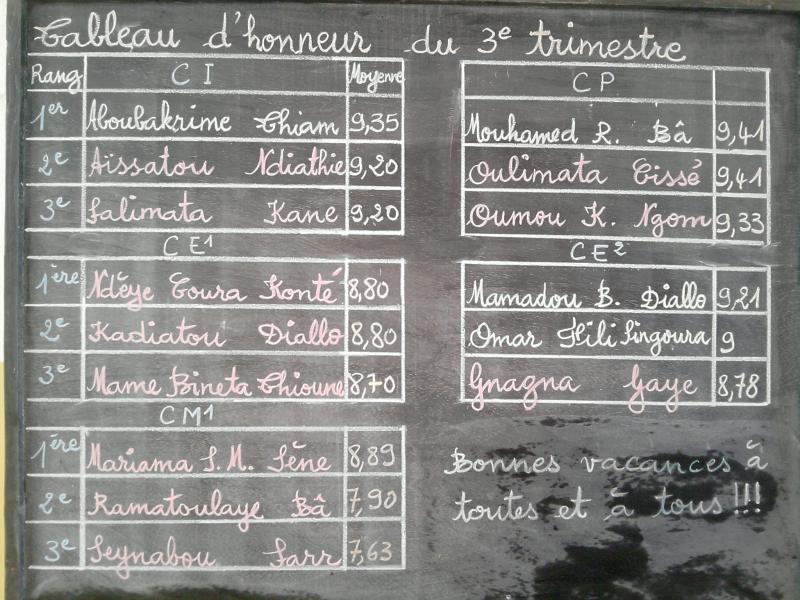 Tableau d'honneur du 3e trimestre
Rang CI Moyenne
1er Aboubakrime Thiam 9,35
2e Aïssatou Ndiathie 9,20
3e Salimata Kane 9,20
CP
Mouhamed R. Bâ 9,41
Oulimata Cissé 9,41
Oumou K. Ngom 9,33
CE1
1ère Ndèye Coura Konté 8,80
2e Kadiatou Diallo 8,80
3e Mame Bineta Thioune 8,70
CE2
Mamadou B. Diallo 9,21
Omar Fili Singoura 9
Gnagna Gaye 8,78
CM1
1ère Mariama S.M. Sène 8,89
2e Ramatoulaye Bâ 7,90
3e Seynabou Sarr 7,63
Bonnes vacances à
toutes et à tous !!!